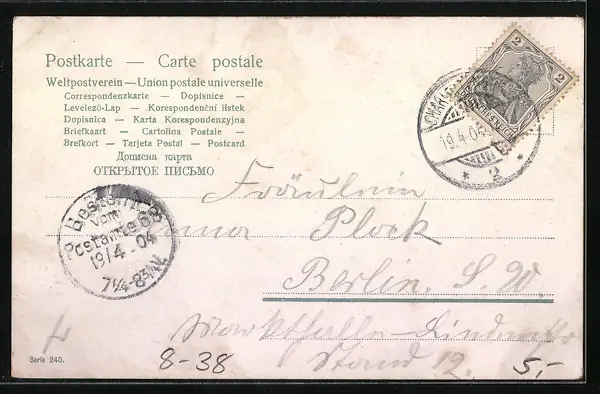 Postkarte — Carte postale
Weltpostverein — Union postale universelle
Correspondenzkarte — Dopisnice —
Levelező-Lap — Korespondenční lístek
Dopisnica — Karta Korespondenzyjna
Briefkaart — Cartolina Postale —
Brefkort — Tarjeta Postal — Postcard
Дописна карта
ОТКРЫТОЕ ПИСЬМО
2 2
19.4.04
* 2 *
Bestellt
vom
Postamte 68
19/4.04
7¼-8¾N.
Fräulein
Plock
Berlin, S. W.
Markthalle
Stand 12.
Serie 240.
8-38
5,-